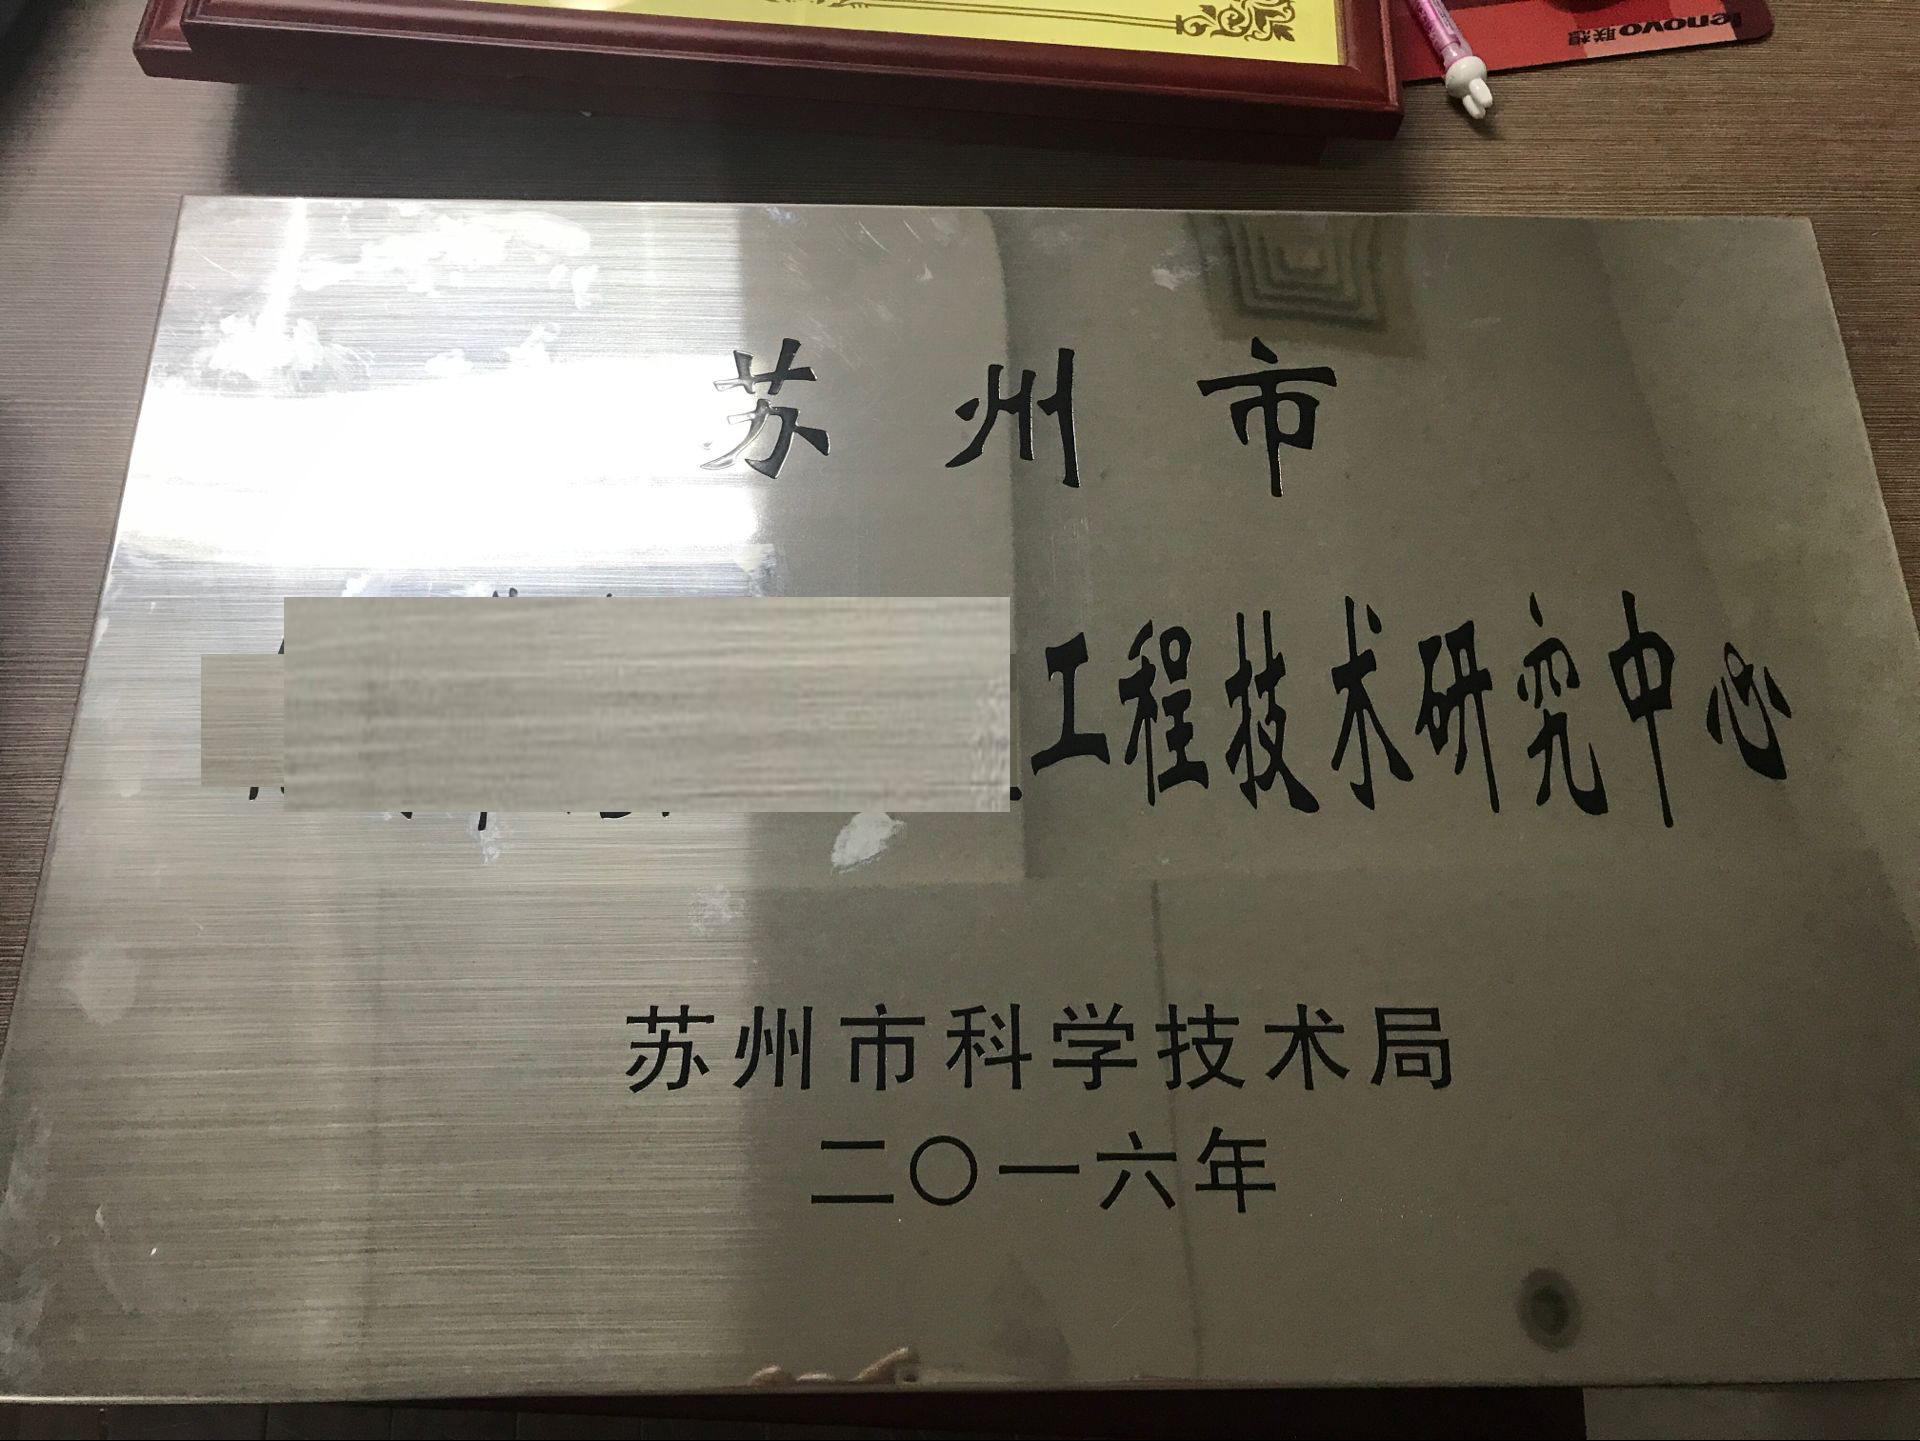 lenovo联想
苏州市
工程技术研究中心
苏州市科学技术局
二〇一六年